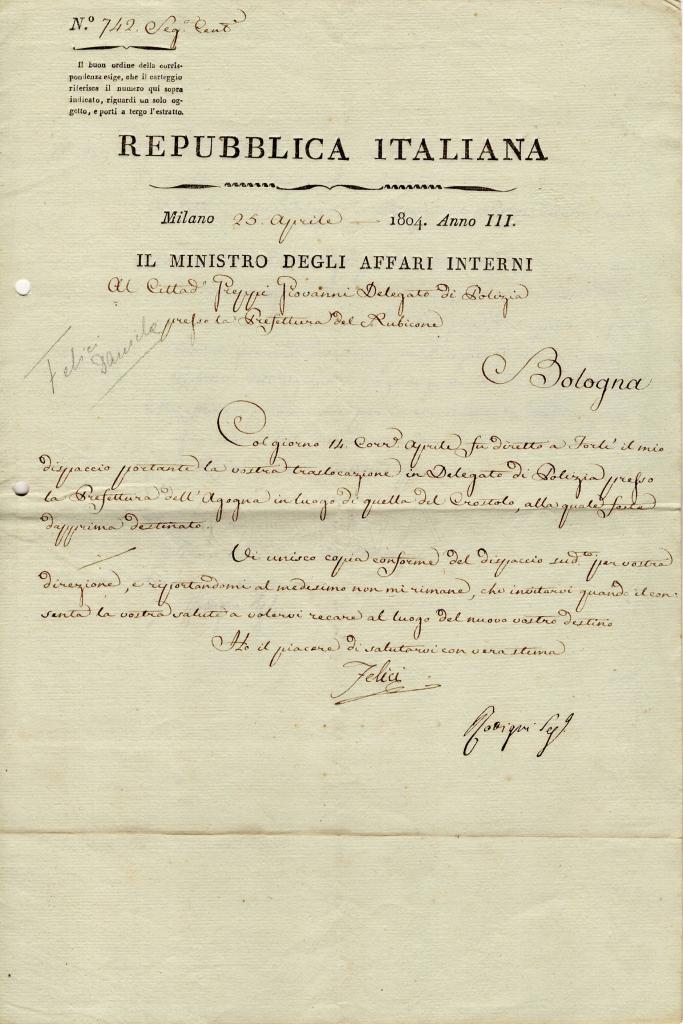 N.º 742. Seg.ª Cent.
Il buon ordine della corris-
pondenza esige, che il carteggio
riferisca il numero qui sopra
indicato, riguardi un solo og-
getto, e porti a tergo l'estratto.
REPUBBLICA ITALIANA
Milano 25. Aprile 1804. Anno III.
IL MINISTRO DEGLI AFFARI INTERNI
Al Cittad.º Greppi Giovanni Delegato di Polizia
presso la Prefettura del Rubicone
Felici
Daniele
Bologna
Col giorno 14. Corr.e Aprile fu diretto a Forlì il mio
dispaccio portante la vostra traslocazione in Delegato di Polizia presso
la Prefettura dell'Agogna in luogo di quella del Crostolo, alla quale foste
dapprima destinato.
Vi unisco copia conforme del dispaccio sud.to per vostra
direzione, e riportandomi al medesimo non mi rimane, che invitarvi quando il con-
senta la vostra salute a volervi recare al luogo del nuovo vostro destino
Ho il piacere di salutarvi con vera stima
Felici